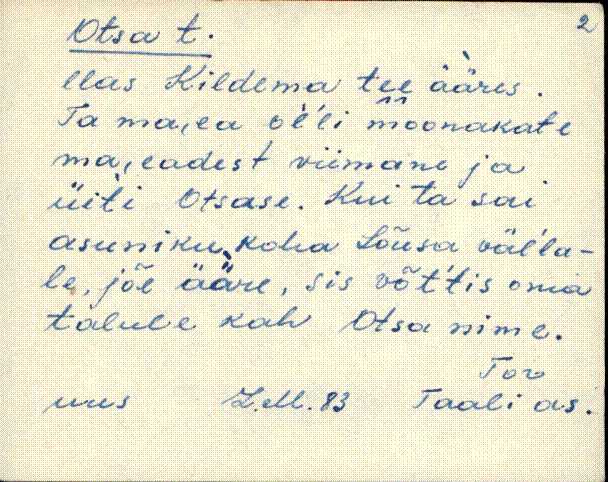 2
Otsa t.
llas Kildema tee ääres.
Ta ma,ea ol'li moonakate
ma,eadest viimane ja
üiti Otsase. Kui ta sai
asuniku koha Lõusa väl'la-
le, jõe ääre, sis võt'tis oma
talule kah Otsa nime.
Tor
uus L.M. 83 Taali as.